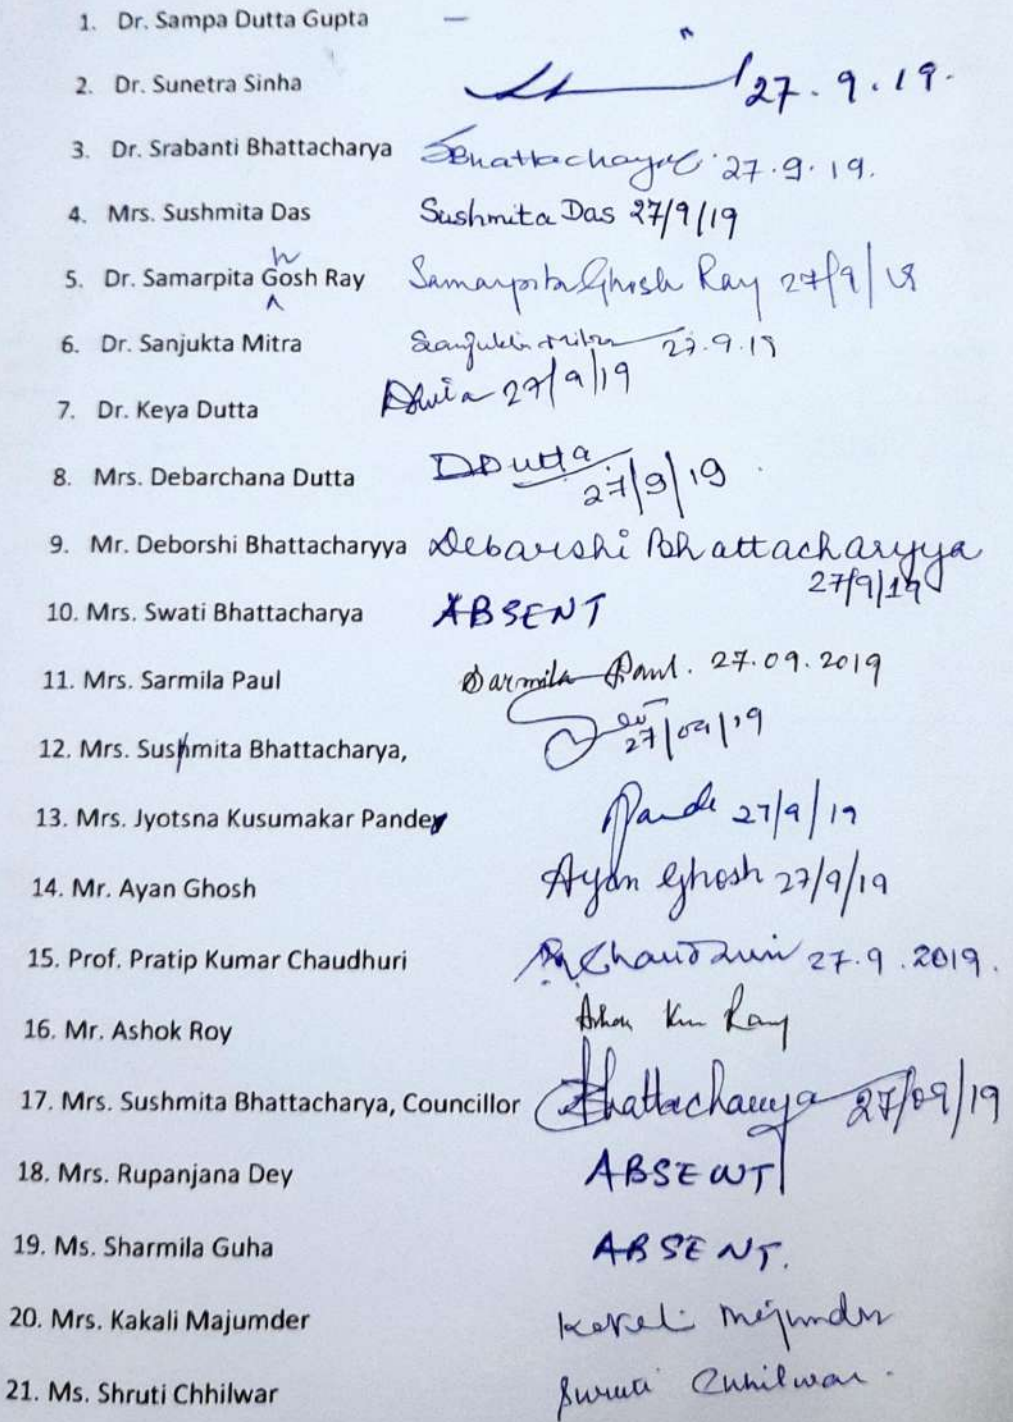 1. Dr. Sampa Dutta Gupta –
2. Dr. Sunetra Sinha 27.9.19.
3. Dr. Srabanti Bhattacharya SBhattacharya 27.9.19.
4. Mrs. Sushmita Das Sushmita Das 27/9/19
h
5. Dr. Samarpita Gosh Ray Samarpita Ghosh Ray 27/9/19
6. Dr. Sanjukta Mitra Sanjukta Mitra 27.9.19
7. Dr. Keya Dutta 27/9/19
8. Mrs. Debarchana Dutta DDutta 27/9/19
9. Mr. Deborshi Bhattacharyya Debarshi Bhattacharyya
27/9/19
10. Mrs. Swati Bhattacharya ABSENT
11. Mrs. Sarmila Paul Sarmila Paul. 27.09.2019
12. Mrs. Sushmita Bhattacharya, 27/09/19
13. Mrs. Jyotsna Kusumakar Pandey Pande 27/9/19
14. Mr. Ayan Ghosh Ayan Ghosh 27/9/19
15. Prof. Pratip Kumar Chaudhuri Chaudhuri 27.9.2019.
16. Mr. Ashok Roy Ashok Km Ray
17. Mrs. Sushmita Bhattacharya, Councillor Bhattacharya 27/09/19
18. Mrs. Rupanjana Dey ABSENT
19. Ms. Sharmila Guha ABSENT.
20. Mrs. Kakali Majumder Kakali Majumder
21. Ms. Shruti Chhilwar Shruti Chhilwar.